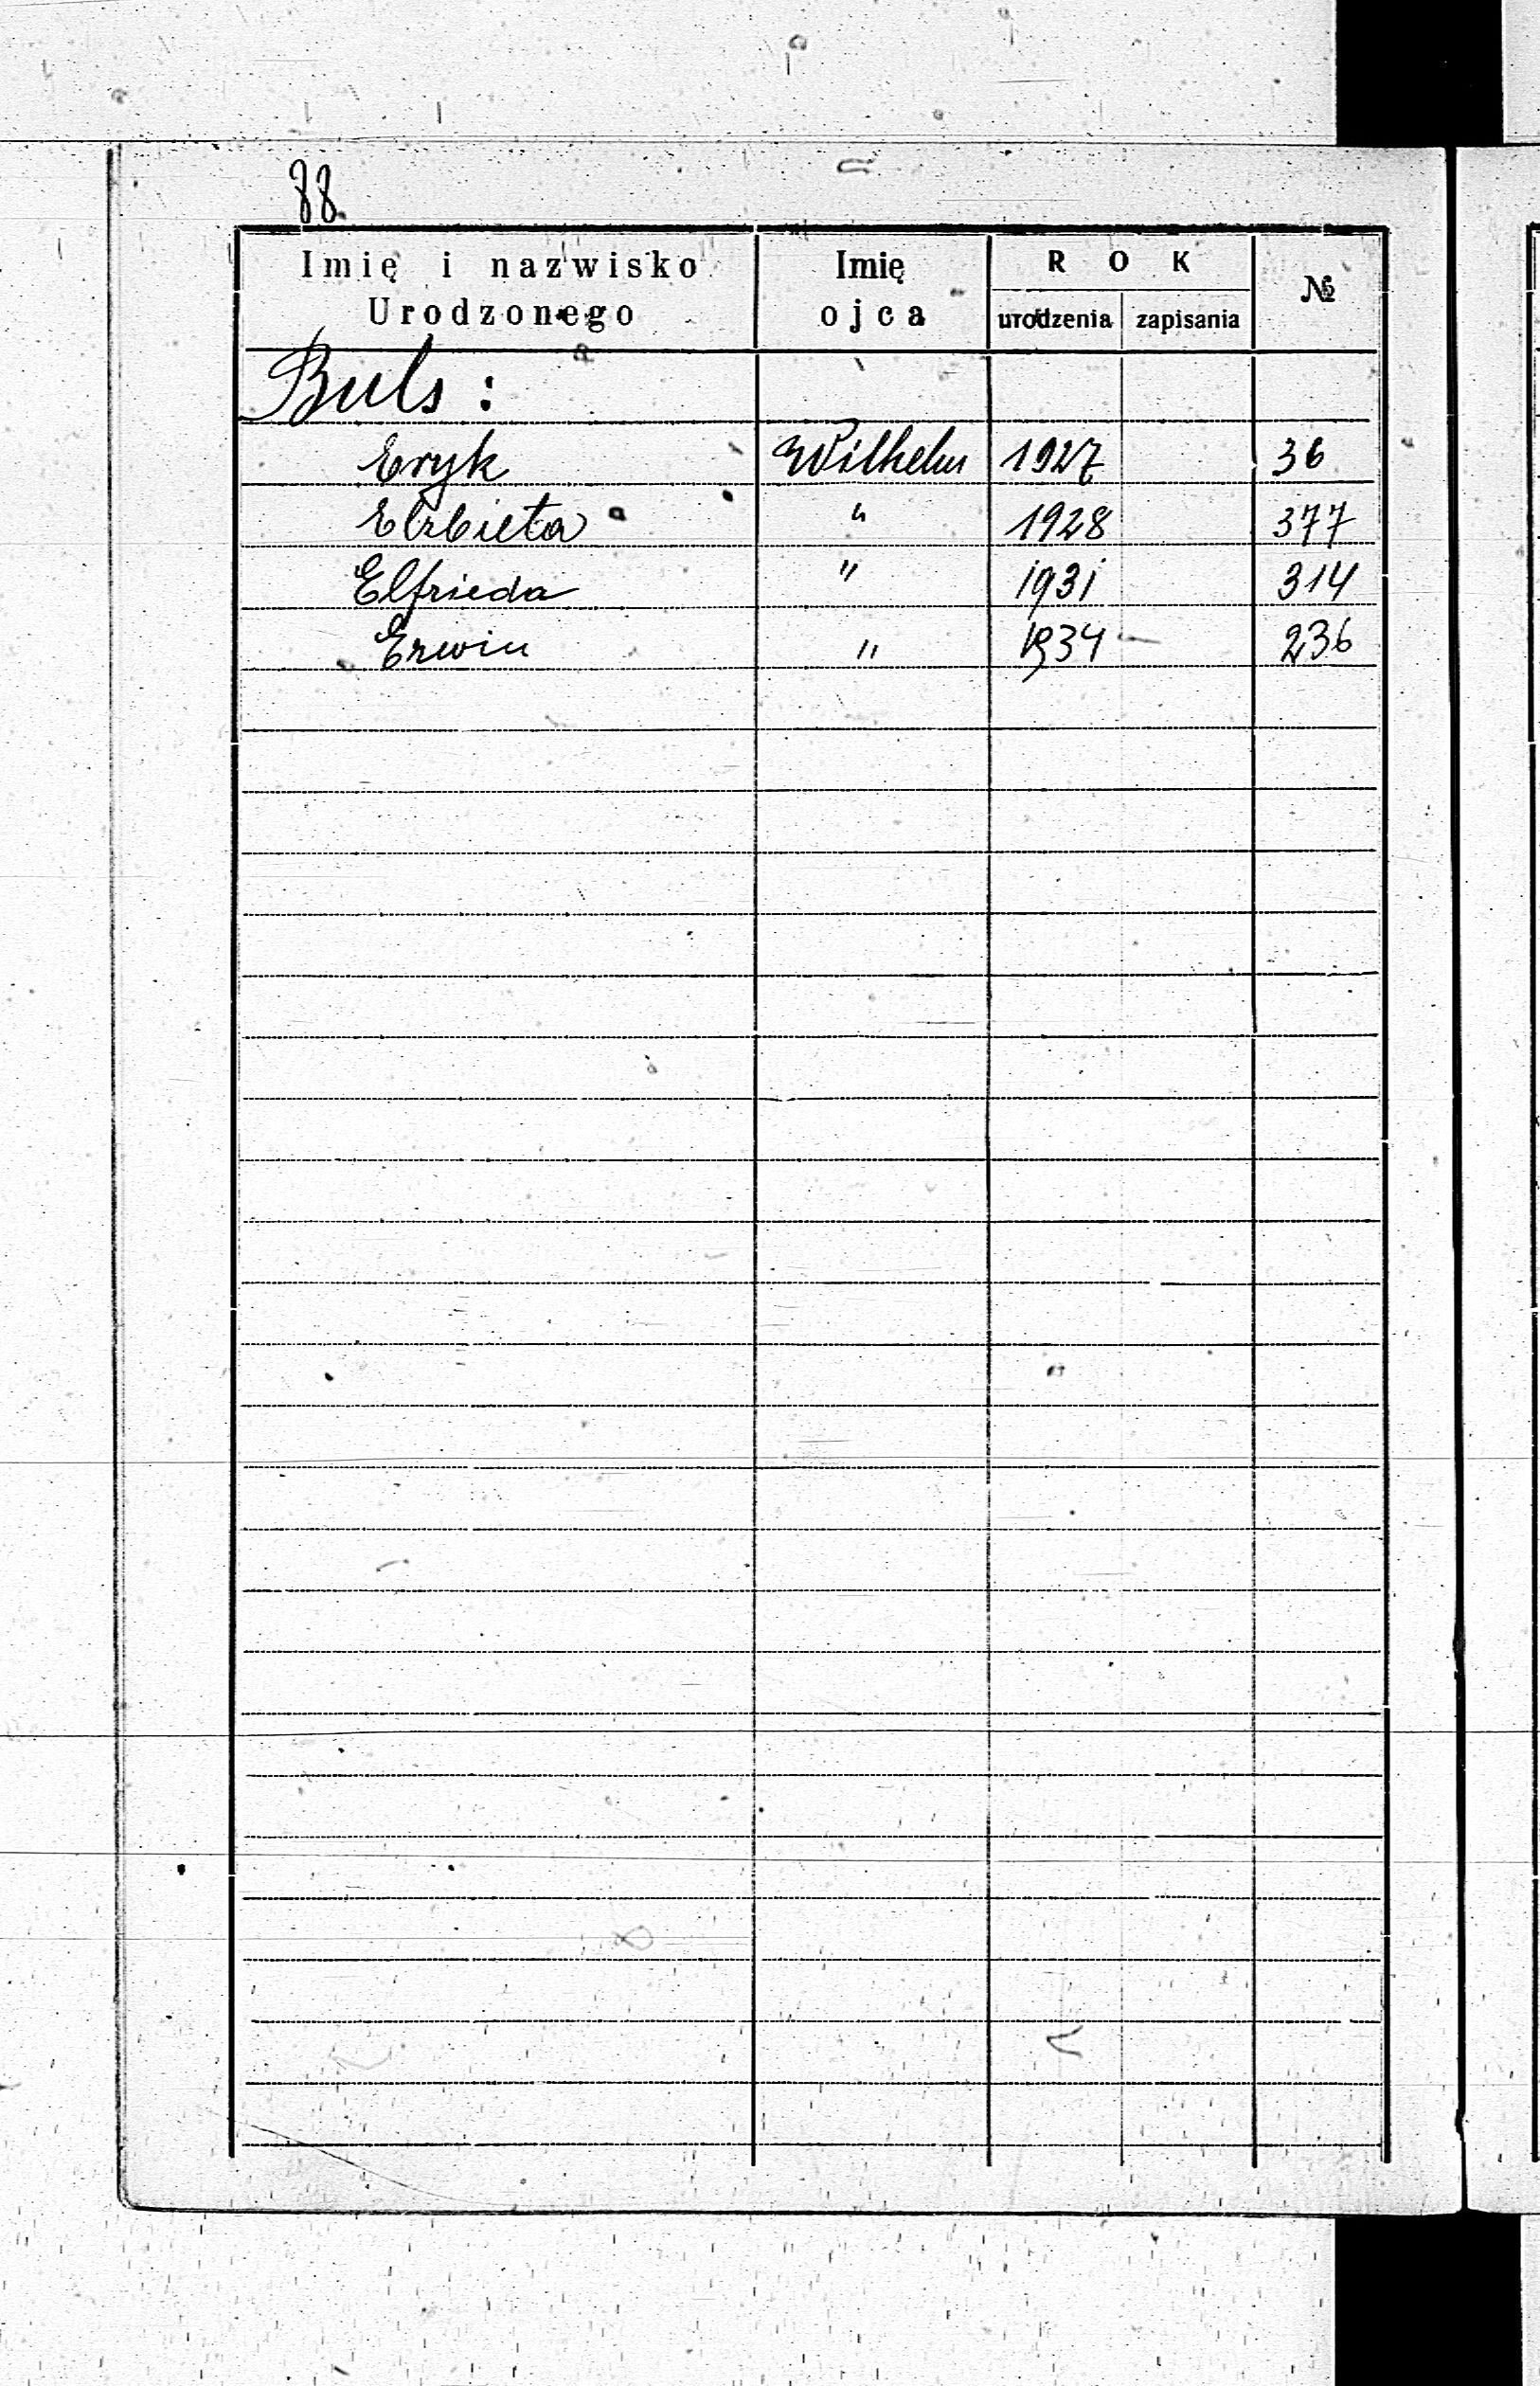 88.
Imię i nazwisko Urodzonego Imię ojca ROK urodzenia zapisania №
Buls :
Eryk Wilhelm 1927 36
Elzbieta " 1928 377
Elfrieda " 1931 314
Erwin " 1934 236